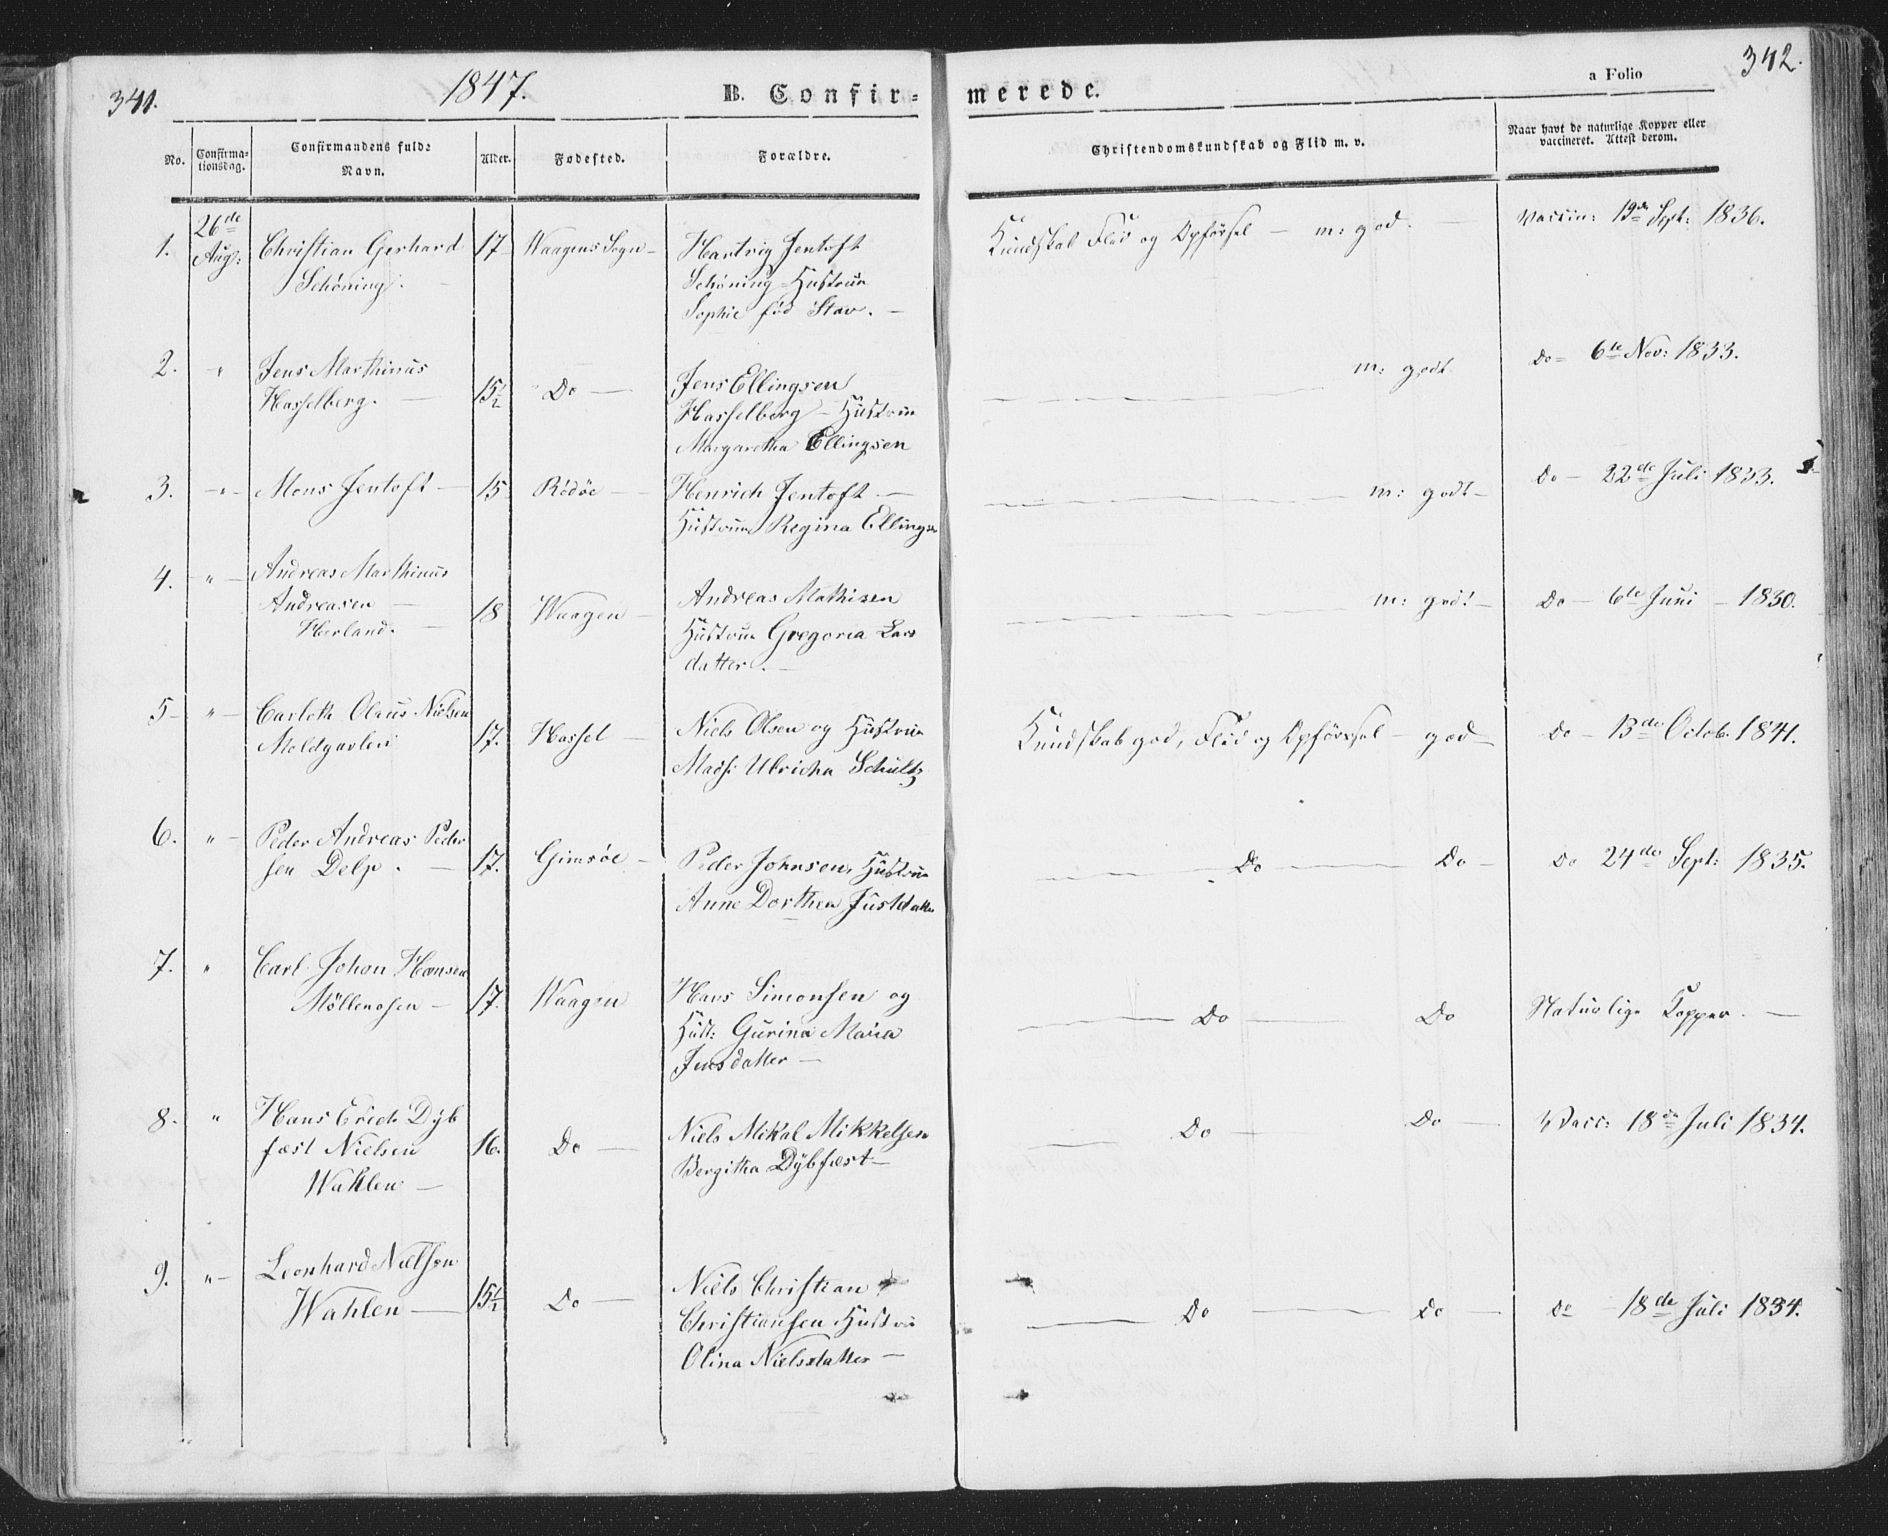 341.
1847.
B. Confir=
merede.
a Folio
342.
No.
Confirma-
tionsdag.
Confirmandens fulde
Navn.
Alder.
Fødested.
Forældre.
Christendomskundskab og Flid m. v.
Naar havt de naturlige Kopper eller
vaccineret. Attest derom.
1.
26de
Aug:
Christian Gerhard
Schöning.
17
Waagens Sogn
Hartvig Jentoft
Schöning Hustrue
Sophie fød Stav.
Kundskab Flid og Opførsel - m: god.
Vaccin: 19de Sept: 1836.
2.
"
Jens Marthinus
Hasselberg.
15½
Do
Jens Ellingsen
Hasselberg - Hustrue
Margaretha Ellingsen
m: godt
Do - 6te Nov: 1833.
3.
"
Mons Jentoft
15
Rödöe
Henrich Jentoft
Hustrue Regina Ellingsen
m: godt
Do - 22de Juli 1833.
4.
"
Andreas Marthinus
Andreasen
Herland.
18
Waagen
Andreas Mathisen
Hustrue Gregoria Lars
datter.
m: godt
Do - 6te Juni - 1830.
5
"
Carloth Olaus Nielsen
Moldgavlen
17.
Hassel
Niels Olsen og Hustrue
Ulricha Schultz
Kundskab god, Flid og Opførsel - god
Do - 13de Octob. 1841.
6.
"
Peder Andreas Peder
sen Delp.
17.
Gimsöe
Peder Johnsen, Hustrue
Anne Dorthea Justdatter
Do
Do
Do 24de Sept: 1835.
7.
"
Carl Johan Hansen
Möllenosen
17.
Waagen
Hans Simonsen og
Hust: Gurina Maria
Jensdatter
Do
Do
Naturlige Kopper.
8.
"
Hans Erich Dÿb
fæst Nielsen
Wahlen
16.
Do
Niels Mikal Mikkelsen
Bergitha Dÿbfæst
Do
Do
Vacc: 18de Juli 1834.
9.
"
Leonhard Nielsen
Wahlen
15½
Do
Niels Christian
Christiansen Hustrue
Olina Nielsdatter
Do
Do
Do 18de Juli 1834.